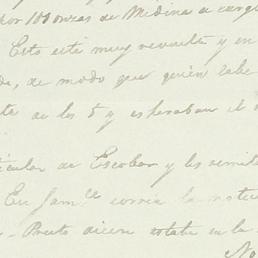 por 100 onzas de Medina a cargo
Esto está muy revuelto y en
de, de modo que quién sabe
de los 5 y esperaban el
ticular de Escobar y les remit
En Jam.ca corria la notic
Prieto dicen estaba en la
No